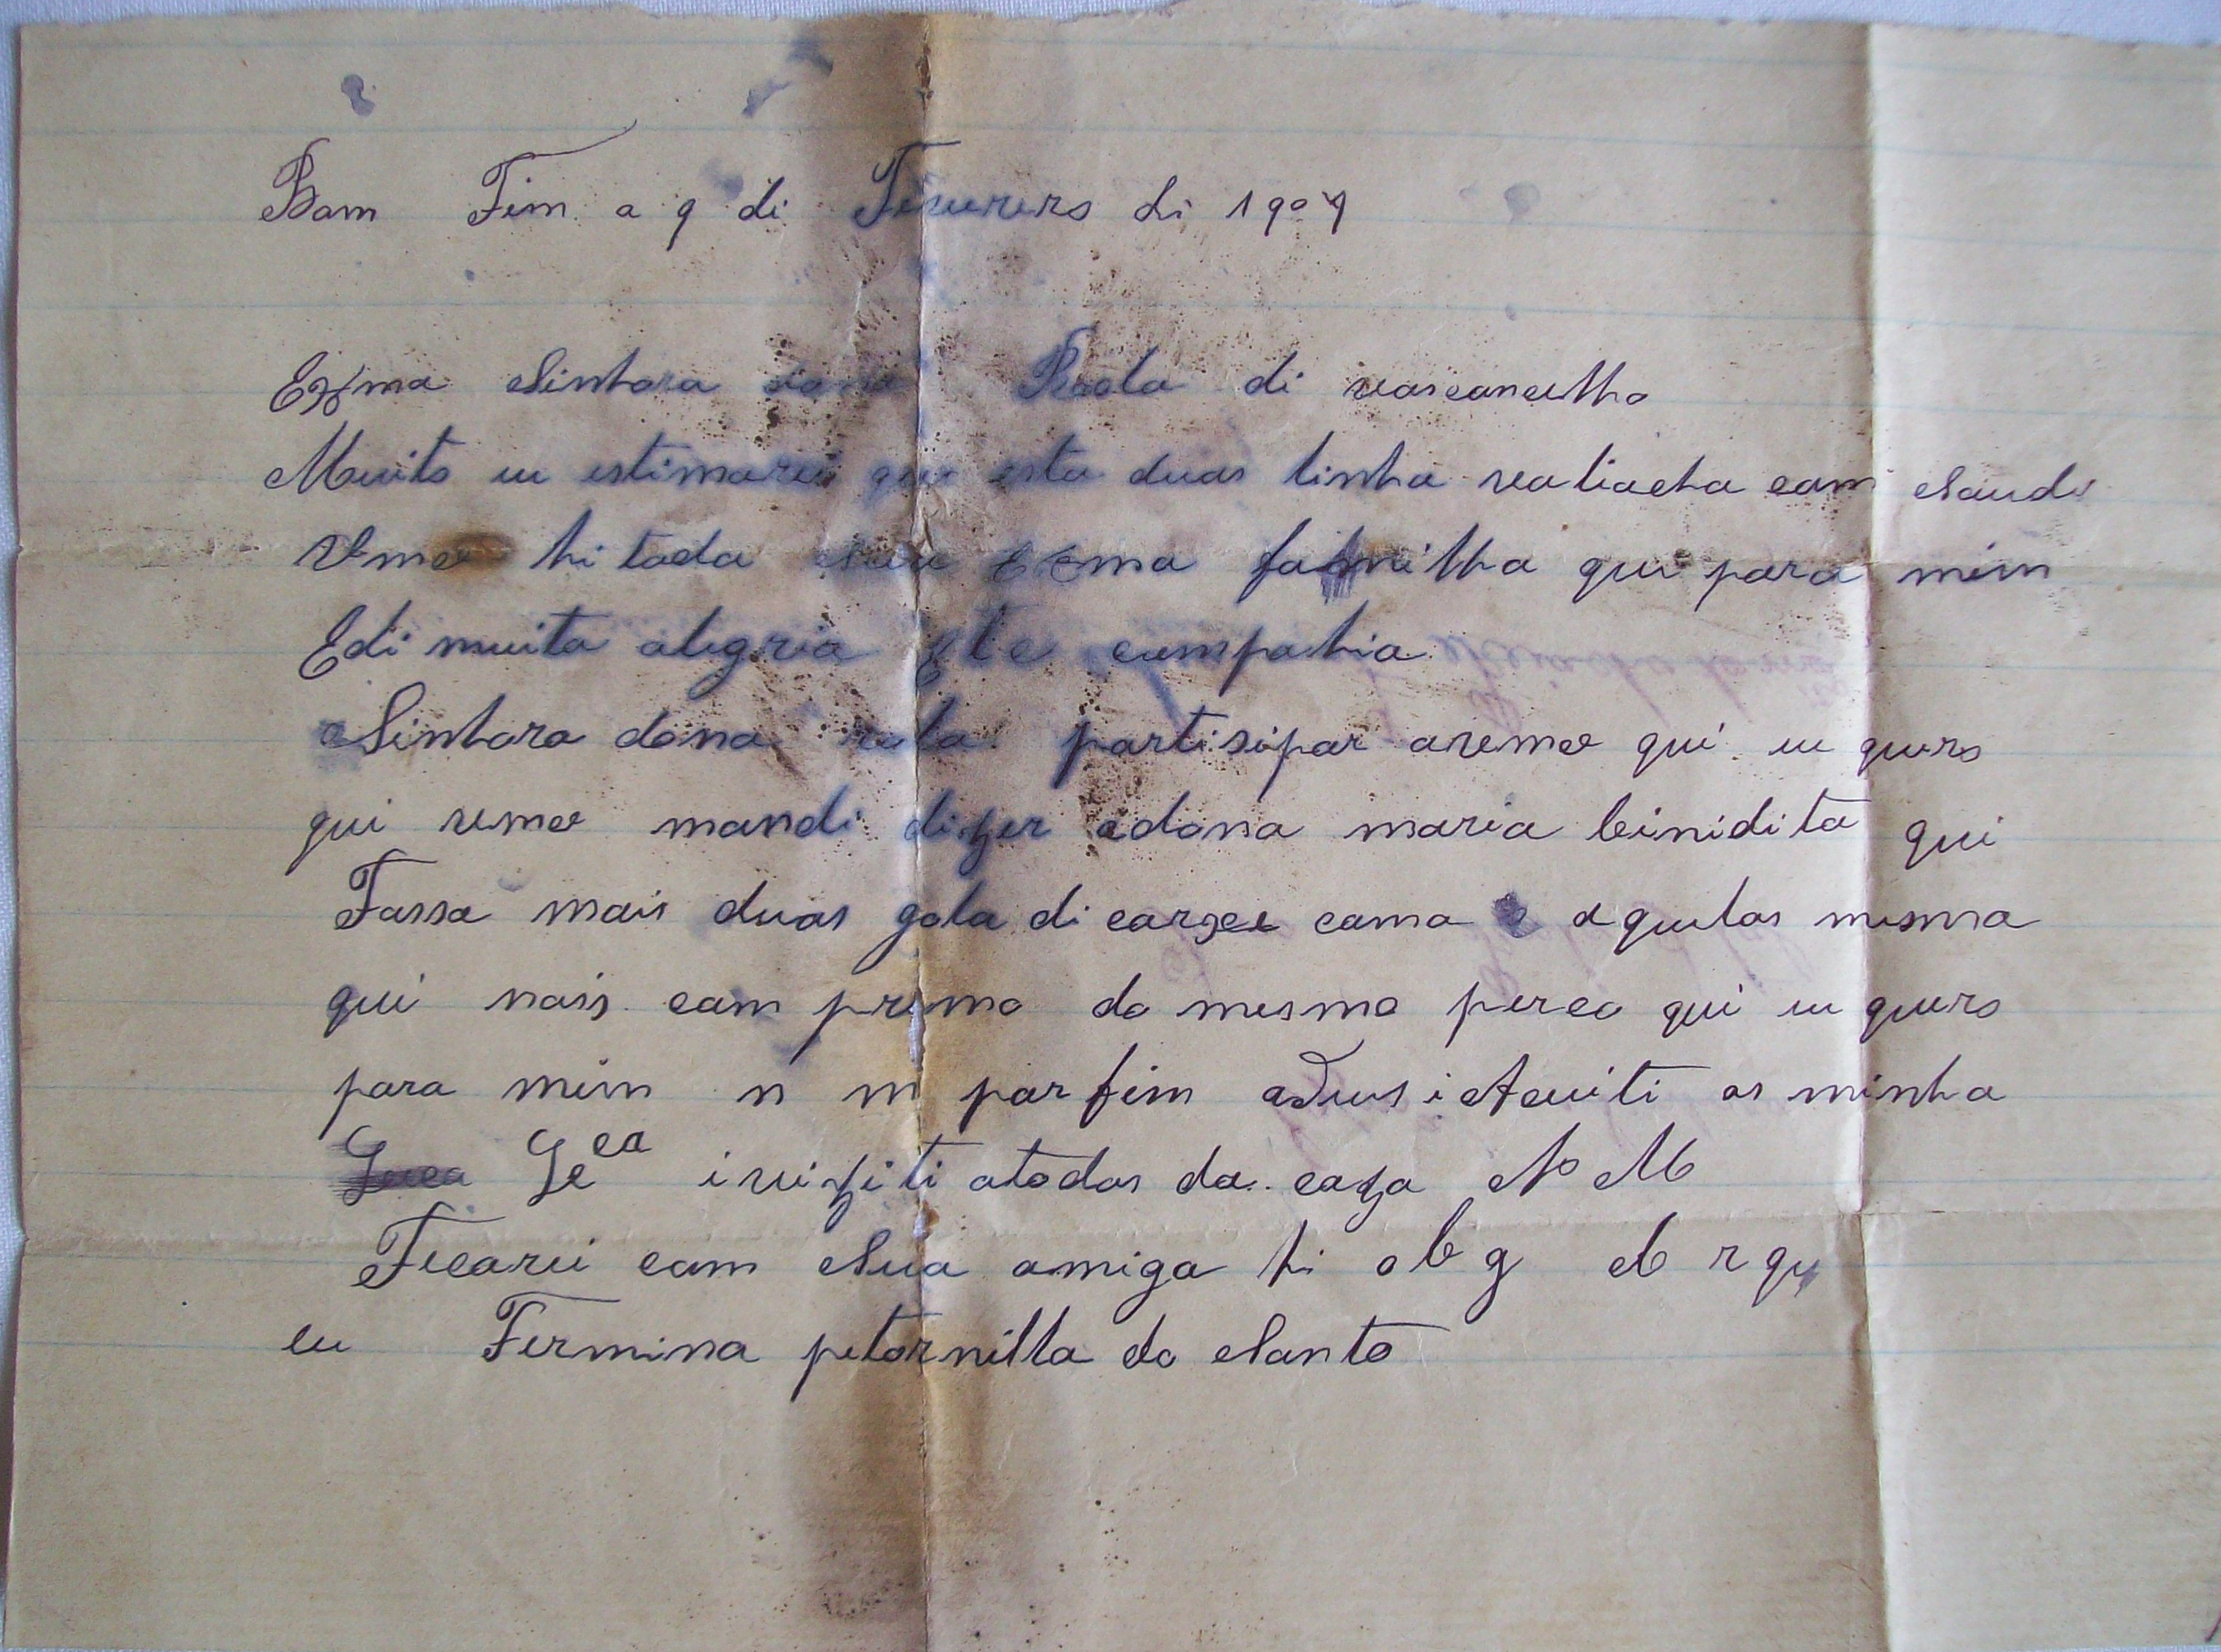 Bom Fim a 9 di Feverero di 1907
Exma Sinhora dona Rola di vasconcello
Muito eu estimarei que esta duas linha va li acha com Saude
Vmce hi toda Sua Exma familha que para mim
E di muita alegria cumpahia
Sinhora dona rola partisipar a vemce qui eu quero
qui vemce mandi dizer a dona maria binidita qui
Fassa mais duas gola di como aquelas mesma
qui nois com primo do mesmo perco qui eu quero
para mim n m por fim adeus i Aceiti as minha
Le ca i viziti a todos da caza N M
Ficarei com Sua amiga hi obg
eu Fermina petornilla do Santo